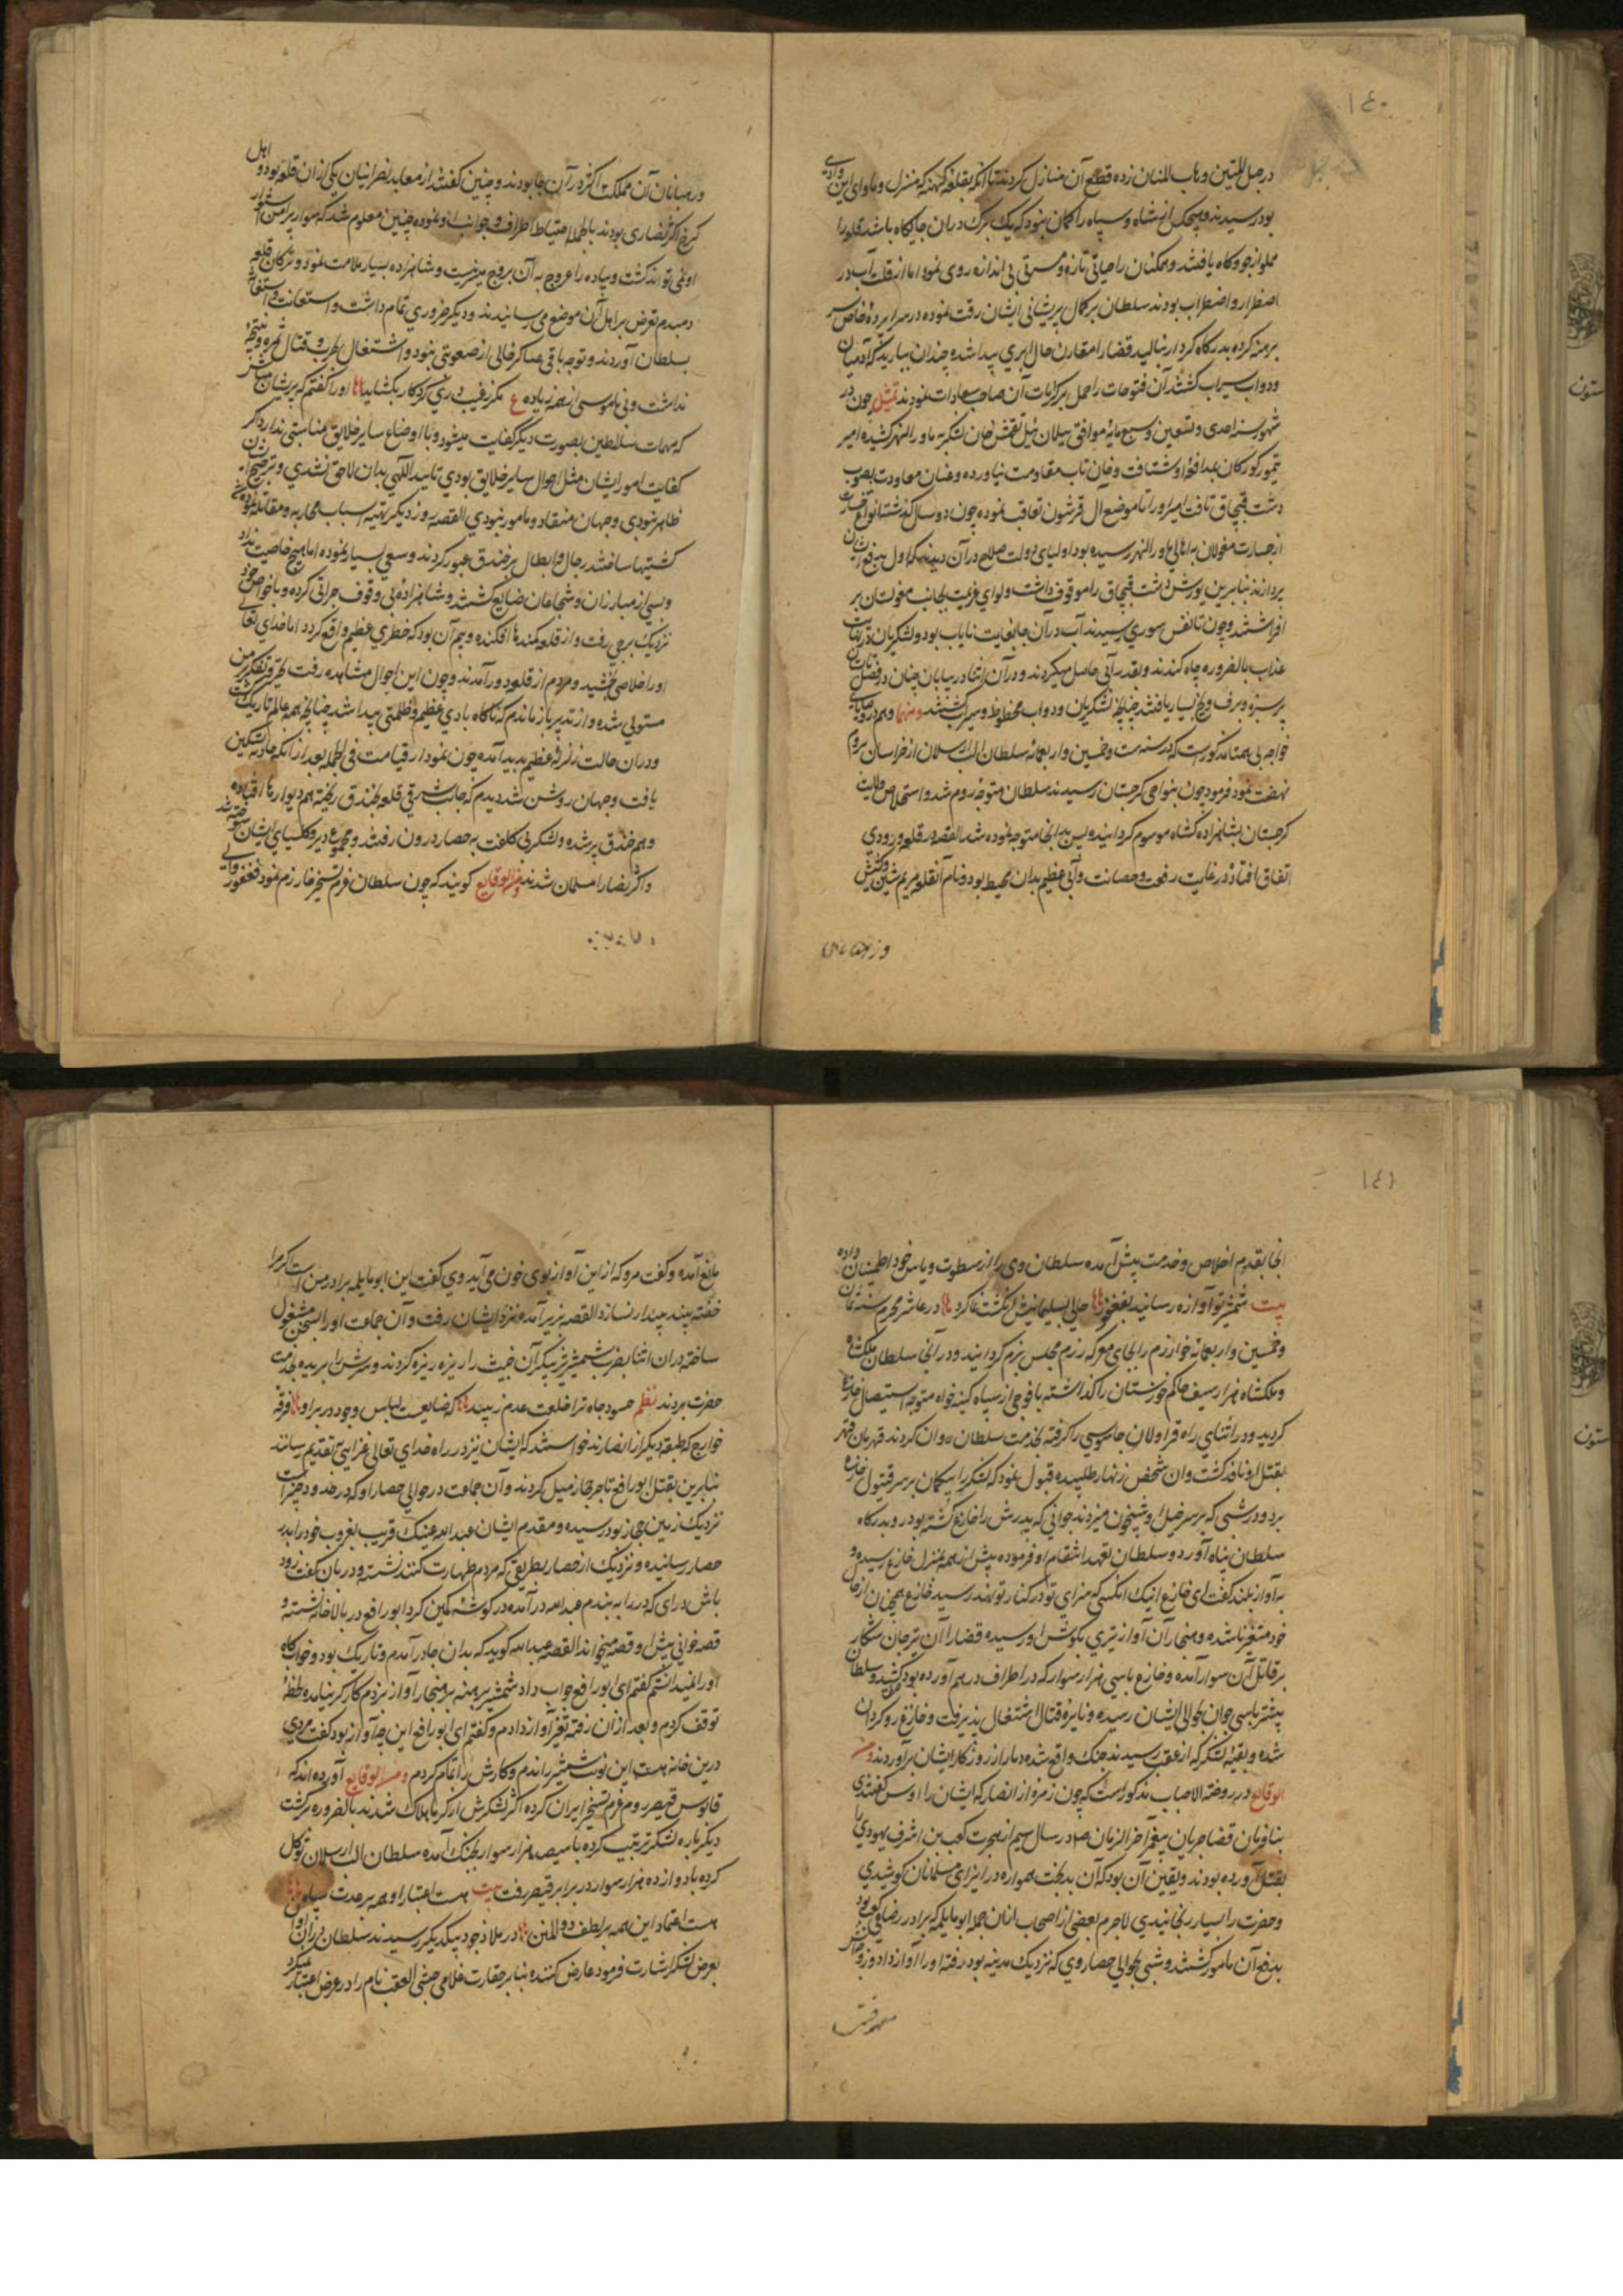 ۱٤۰
در حبل المتین و باب المنان زده قطع آن منازل کردند تا آنکه بقلعه کهنه که منزل و ماوای این وادی
بود رسیدند و هیچکس از شاه و سپاه را کمان نبود که یک برک دران جایکاه باشد قلعه را
مملو از جو و کاه یافتند و همکنان را حیاتی تازه و مسرتی بی اندازه روی نمود اما از قلت آب در
اضطرار و اضطراب بودند سلطان بر کمال پریشانی ایشان رقت نموده در سراپرده خاص سر
برهنه کرده بدرکاه کردکار نالید قضارا مقارن حال ابری پیدا شده چندان ببارید که آدمیان
و دواب سیراب کشتند آن فتوحات را حمل بر کرامات آن صاحب سعادات نمودند تمثیل چون در
شهور سنه احدی و تسعین و سبع مایة موافق ییلان ئیل تقتمش خان لشکر به ماورالنهر کشیده امیر
تیمور کورکان بمدافعه او شتافت و خان تاب مقاومت نیاورده و عنان معاودت بصوب
دشت قبچاق تافت امیر اورا تا موضع آل قرشون تعاقب نموده چون دو سال کذشته انواع
از جسارت مغولان به اهالی ماورالنهر رسیده بود اولیای دولت صلاح در آن دیدند که اول بدفع ایشان
پردازند بنابرین یورش دشت قبچاق را موقوف داشت و لوای عزیمت بجانب مغولستان بر
افراشتند و چون تا نفس سوری رسیدند آب در آن جا بغایت نایاب بود و لشکریان در غایت
عذاب بالضروره چاه کندند و بقدر آبی حاصل میکردند و در آن اثنا در بیابان چنان در فصل تابستان
پر سبزه و برف و یخ بسیار یافتند چنانچه لشکریان و دواب محظوظ و سیراب کشتند و منها و هم در وصایای
خواجه بی همتا مذکورست که در سنه ست و خمسین و اربعمائه سلطان الب ارسلان از خراسان بروم
نهضت نمود فرمود چون بنواحی کرجستان رسیدند سلطان متوجه روم شد و استخلاص ولایت
کرجستان بشاهزاده ملکشاه موسوم کردانیده پس بدانجا متوجه نموده شد القصه در قلعه ورودی
اتفاق افتاد در غایت رفعت و حصانت و آبی عظیم بدان محیط بود و نام آن قلعه مریم نشین و کشیش
و رهبانان آن مملکت اکثر در آن جا بودند و چنین کفتند از معابد نصرانیان یکی از ان قلعه بود و اهل
کرخ اکثر نصاری بودند بالجمله احتیاط اطراف و جوانب او نموده چنین معلوم شد که سوار پیرامن اسوار
او نمی تواند کشت و پیاده را عروج به آن بروج میسر نیست و شاهزاده بسیار ملامت نمود و ترکان قلعه
دمبدم تعرض بر اهل آن موضع می رسانیدند و دیکر ضروری تمام داشت و استعانت و استغاثه
بسلطان آوردند و توجه باقی عساکر خالی از صعوبتی نبود و اشتغال بحرب و قتال ثمره و نتیجه
نداشت و بی ناموسی از همه زیاده ع مکر ز غیب دری کردکار بکشاید اورا کفتم که پریشان مباش
که مهمات سلاطین بصورت دیکر کفایت میشود و با اوضاع سایر خلایق مناسبتی ندارد اکر
کفایت امور ایشان مثل احوال سایر خلایق بودی تایید الهی بدان لاحق نشدی و ترجیح ایشان
ظاهر نبودی و جهان منقاد و مامور نبودی القصه روز دیکر بتهیه اسباب محاربه و مقاتله نموده
کشتیها ساختند رجال و ابطال بر خندق عبور کردند و سعی بسیار نموده اما هیچ خاصیت نداد
و بسی از مبارزان و شجاعان ضایع کشتند و شاهزاده بی وقوف جراتی کرده و با خواص خود
نزدیک برجی رفت و از قلعه کمندها افکنده و بیم آن بود که خطری عظیم واقع کردد اما خدای تعالی
اورا خلاصی بخشید و مردم از قلعه ور آمدند و چون این احوال مشاهده رفت تحیر و تفکر بر من
مستولی شده و از تدبیر باز ماندم که ناکاه بادی عظیم و ظلمتی پیدا شد چنانچه همه عالم تاریک کشت
و در ان حالت زلزله عظیم پدید آمده چون نمودار قیامت فی الجمله بعد از انکه حادثه تسکین
یافت و جهان روشن شد دیدم که جانب شرقی قلعه بخندق ریخته هم دیوارها افتاده
و هم خندق پر شده و لشکر بی کلفت به حصار درون رفتند و مجموع دیر و کلیسای ایشان سوخته شد
و اکثر نصارا مسلمان شدند و من الوقایع کویند که چون سلطان عزم تسخیر خوارزم نمود فغفور والی
۱٤۱
انجا بقدم اخلاص و خدمت پیش آمده سلطان وی را از سطوت و باس خود اطمینان داده
بیت شمشیر تو آوازه رسانید بفغفور حالی بسلیمانیش انکشت نما کرد در عاشر محرم سنه ثمان
و خمسین و اربعمائه خوارزم را بجای معرکه رزم مجلس بزم کردانیند و در آنجا سلطان ملکشاه
و ملکشاه هزار سیف حاکم خوزستان را کذاشته با فوجی از سپاه کینه خواه متوجه استیصال خازغ
کردید و در اثنای راه قراولان جاسوسی را کرفته بخدمت سلطان روان کردند قهرمان قهر
بقتل او نافذ کشت و ان شخص زنهار طلبیده قبول نمود که لشکر را بیکمان بر سر قتول خازغ
برد و در شبی که بر سر خیل او شبیخون میزدند جوانی که پدرش را خازغ کشته بود رو بدرکاه
سلطان پناه آورد و سلطان تعهد انتقام او فرموده پیش از همه بمنزل خازغ رسیده و
به آواز بلند کفت ای خازغ اینک انکسی که سزای تو در کنار تو نهد رسید خازغ همچنان از جای
خود متغیر ناشده و منجار آن آواز تیری بکوش او رسیده قضارا آن تیر جان شکار
بر قاتل آن سوار آمده و خازغ با سی هزار سوار که در اطراف در هم آورده بود کشید و سلطان
پیشتر با سی جوان بحوالی ایشان رسیده و نایره قتال اشتغال پذیرفت و خازغ رو کردان
شده و بقیه لشکر که از عقب رسیدند جنک واقع شده دمار از روزکار ایشان برآوردند و من
الوقایع در روضة الاحباب مذکور است که چون زمره از انصار که ایشان را اوس کفتندی
بنا فرمان قضا جریان پیغمبر آخر الزمان ص در سال سیم از هجرت کعب بن اشرف یهودی را
بقتل آورده بودند و یقین آن بود که آن بدبخت همواره در ایذای مسلمانان کوشیدی
و حضرت را بسیار رنجانیدی لاجرم بعضی از اصحاب ازان جمله ابونایله که برادر رضاعی کعب بود
بدفع آن مامور کشتند و شبی بحوالی حصار وی که نزدیک مدینه بود رفته اورا آواز داد و زوجه اش
مانع آمده و کفت مرو که از این آواز بوی خون می آید وی کفت این ابونایله برادر من است اکر مرا
خفته بیند بیدار نسازد القصه بزیر آمده نزد ایشان رفت و آن جماعت اورا بسخن مشغول
ساخته در ان اثنا بضرب شمشیر تیز پیکر آن خبیث را ریزه ریزه کردند و سرش را بریده بخدمت
حضرت بردند نظم حسود جاه ترا خلعت عدم زیبد که ضایعست لباس وجود در بر او فرقه
خوارج که طبقه دیکر از انصارند خواستند که ایشان نیز در راه خدای تعالی غزایی بتقدیم رسانند
بنابرین بقتل ابورافع تاجر حجاز میل کردند و آن جماعت در حوالی حصار او که در حدود خیبر است
نزدیک زمین حجاز بود رسیده و مقدم ایشان عبدالله عتیک قریب بغروب خود را بدر
حصار رسانیده و نزدیک از حصار بطریقی که مردم طهارت کنند نشسته و دربان کفت زود
باش درای که در را به بندم عبدالله در آمده در کوشه کمین کرد ابورافع در بالاخانه نشسته و
قصه خوانی پیش او قصه میخواند القصه عبدالله کوید که بدان جا در آمدم و تاریک بود و خوابکاه
اورا نمیدانستم کفتم ای ابورافع جواب داد شمشیر برهنه بر منجار آواز نزدم کارکر نیامده لحظه
توقف کردم و بعد از ان رفته تغیر آواز دادم و کفتم ای ابورافع این چه آواز بود کفت مردی
درین خانه هست این نوبت شمشیر راندم و کارش را تمام کردم و من الوقایع آورده اند که
قانوس قیصر روم عزم تسخیر ایران کرده اکثر لشکرش از کرما هلاک شدند بالضروره برکشت
دیکر باره لشکر ترتیب کرده با سیصد هزار سوار بجنک آمده سلطان الب ارسلان توکل
کرده با دوازده هزار سوار در برابر قیصر رفت بیت هست اعتبار او همه بر عدت سپاه
هست اعتماد این همه بر لطف ذوالمنن در ملاذجرد بیکدیکر رسیدند سلطان
بعرض لشکر اشارت فرمود عارض کننده بنابر حقارت غلامی حبشی العقب نام را در عرض اعتبار نمیکرد